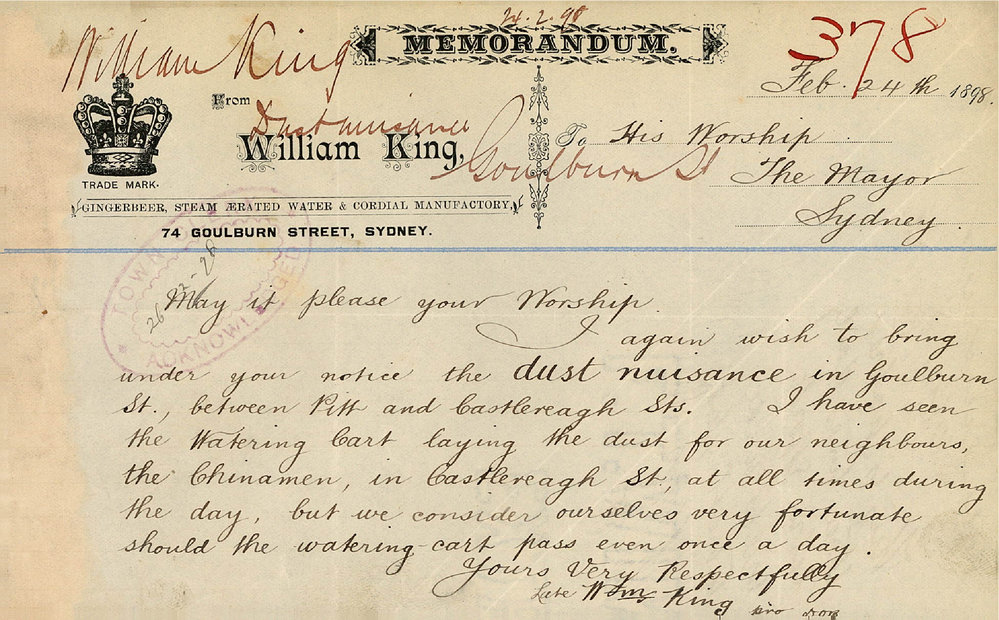 24.2.98
William King
MEMORANDUM.
378
Feb. 24th 1898.
From
Dust nuisance
William King,
Goulburn St
To His Worship
The Mayor
Sydney.
TRADE MARK.
GINGERBEER, STEAM ÆRATED WATER & CORDIAL MANUFACTORY,
74 GOULBURN STREET, SYDNEY.
TOWN
ACKNOWL
May it please your Worship
I again wish to bring
under your notice the dust nuisance in Goulburn
St., between Pitt and Castlereagh Sts. I have seen
the Watering Cart laying the dust for our neighbours,
the Chinamen, in Castlereagh St., at all times during
the day, but we consider ourselves very fortunate
should the watering-cart pass even once a day.
Yours Very Respectfully
Late Wm. King